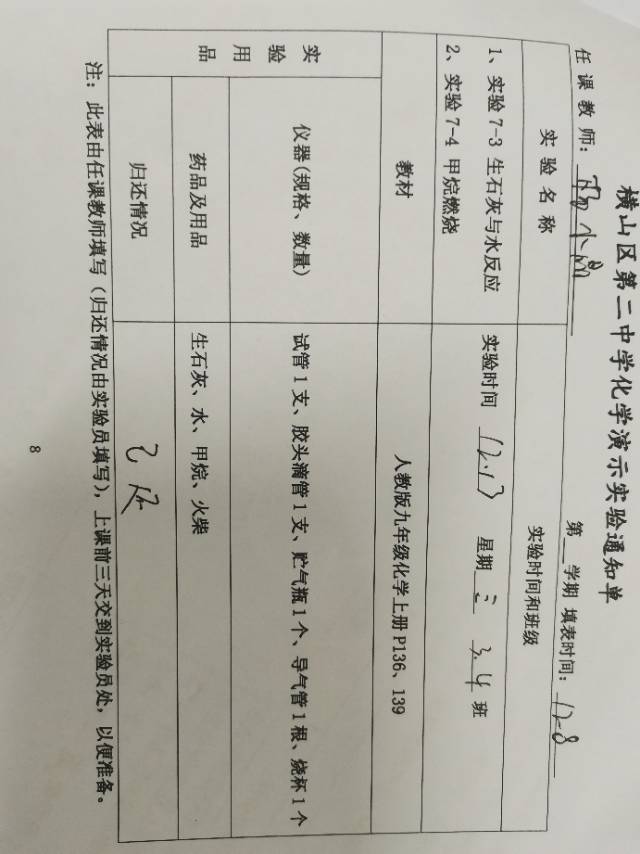 横山区第二中学化学演示实验通知单
任课教师： 小
第 学期 填表时间： 12-8
实验名称 实验时间和班级
1、实验 7-3 生石灰与水反应
2、实验 7-4 甲烷燃烧
实验时间 12.13 星期 三 3.4 班
教材 人教版九年级化学上册 P136、139
实验用品
仪器(规格、数量) 试管 1 支、胶头滴管 1 支、贮气瓶 1 个、导气管 1 根、烧杯 1 个
药品及用品 生石灰、水、甲烷、火柴
归还情况 已还
注：此表由任课教师填写（归还情况由实验员填写），上课前三天交到实验员处，以便准备。
8